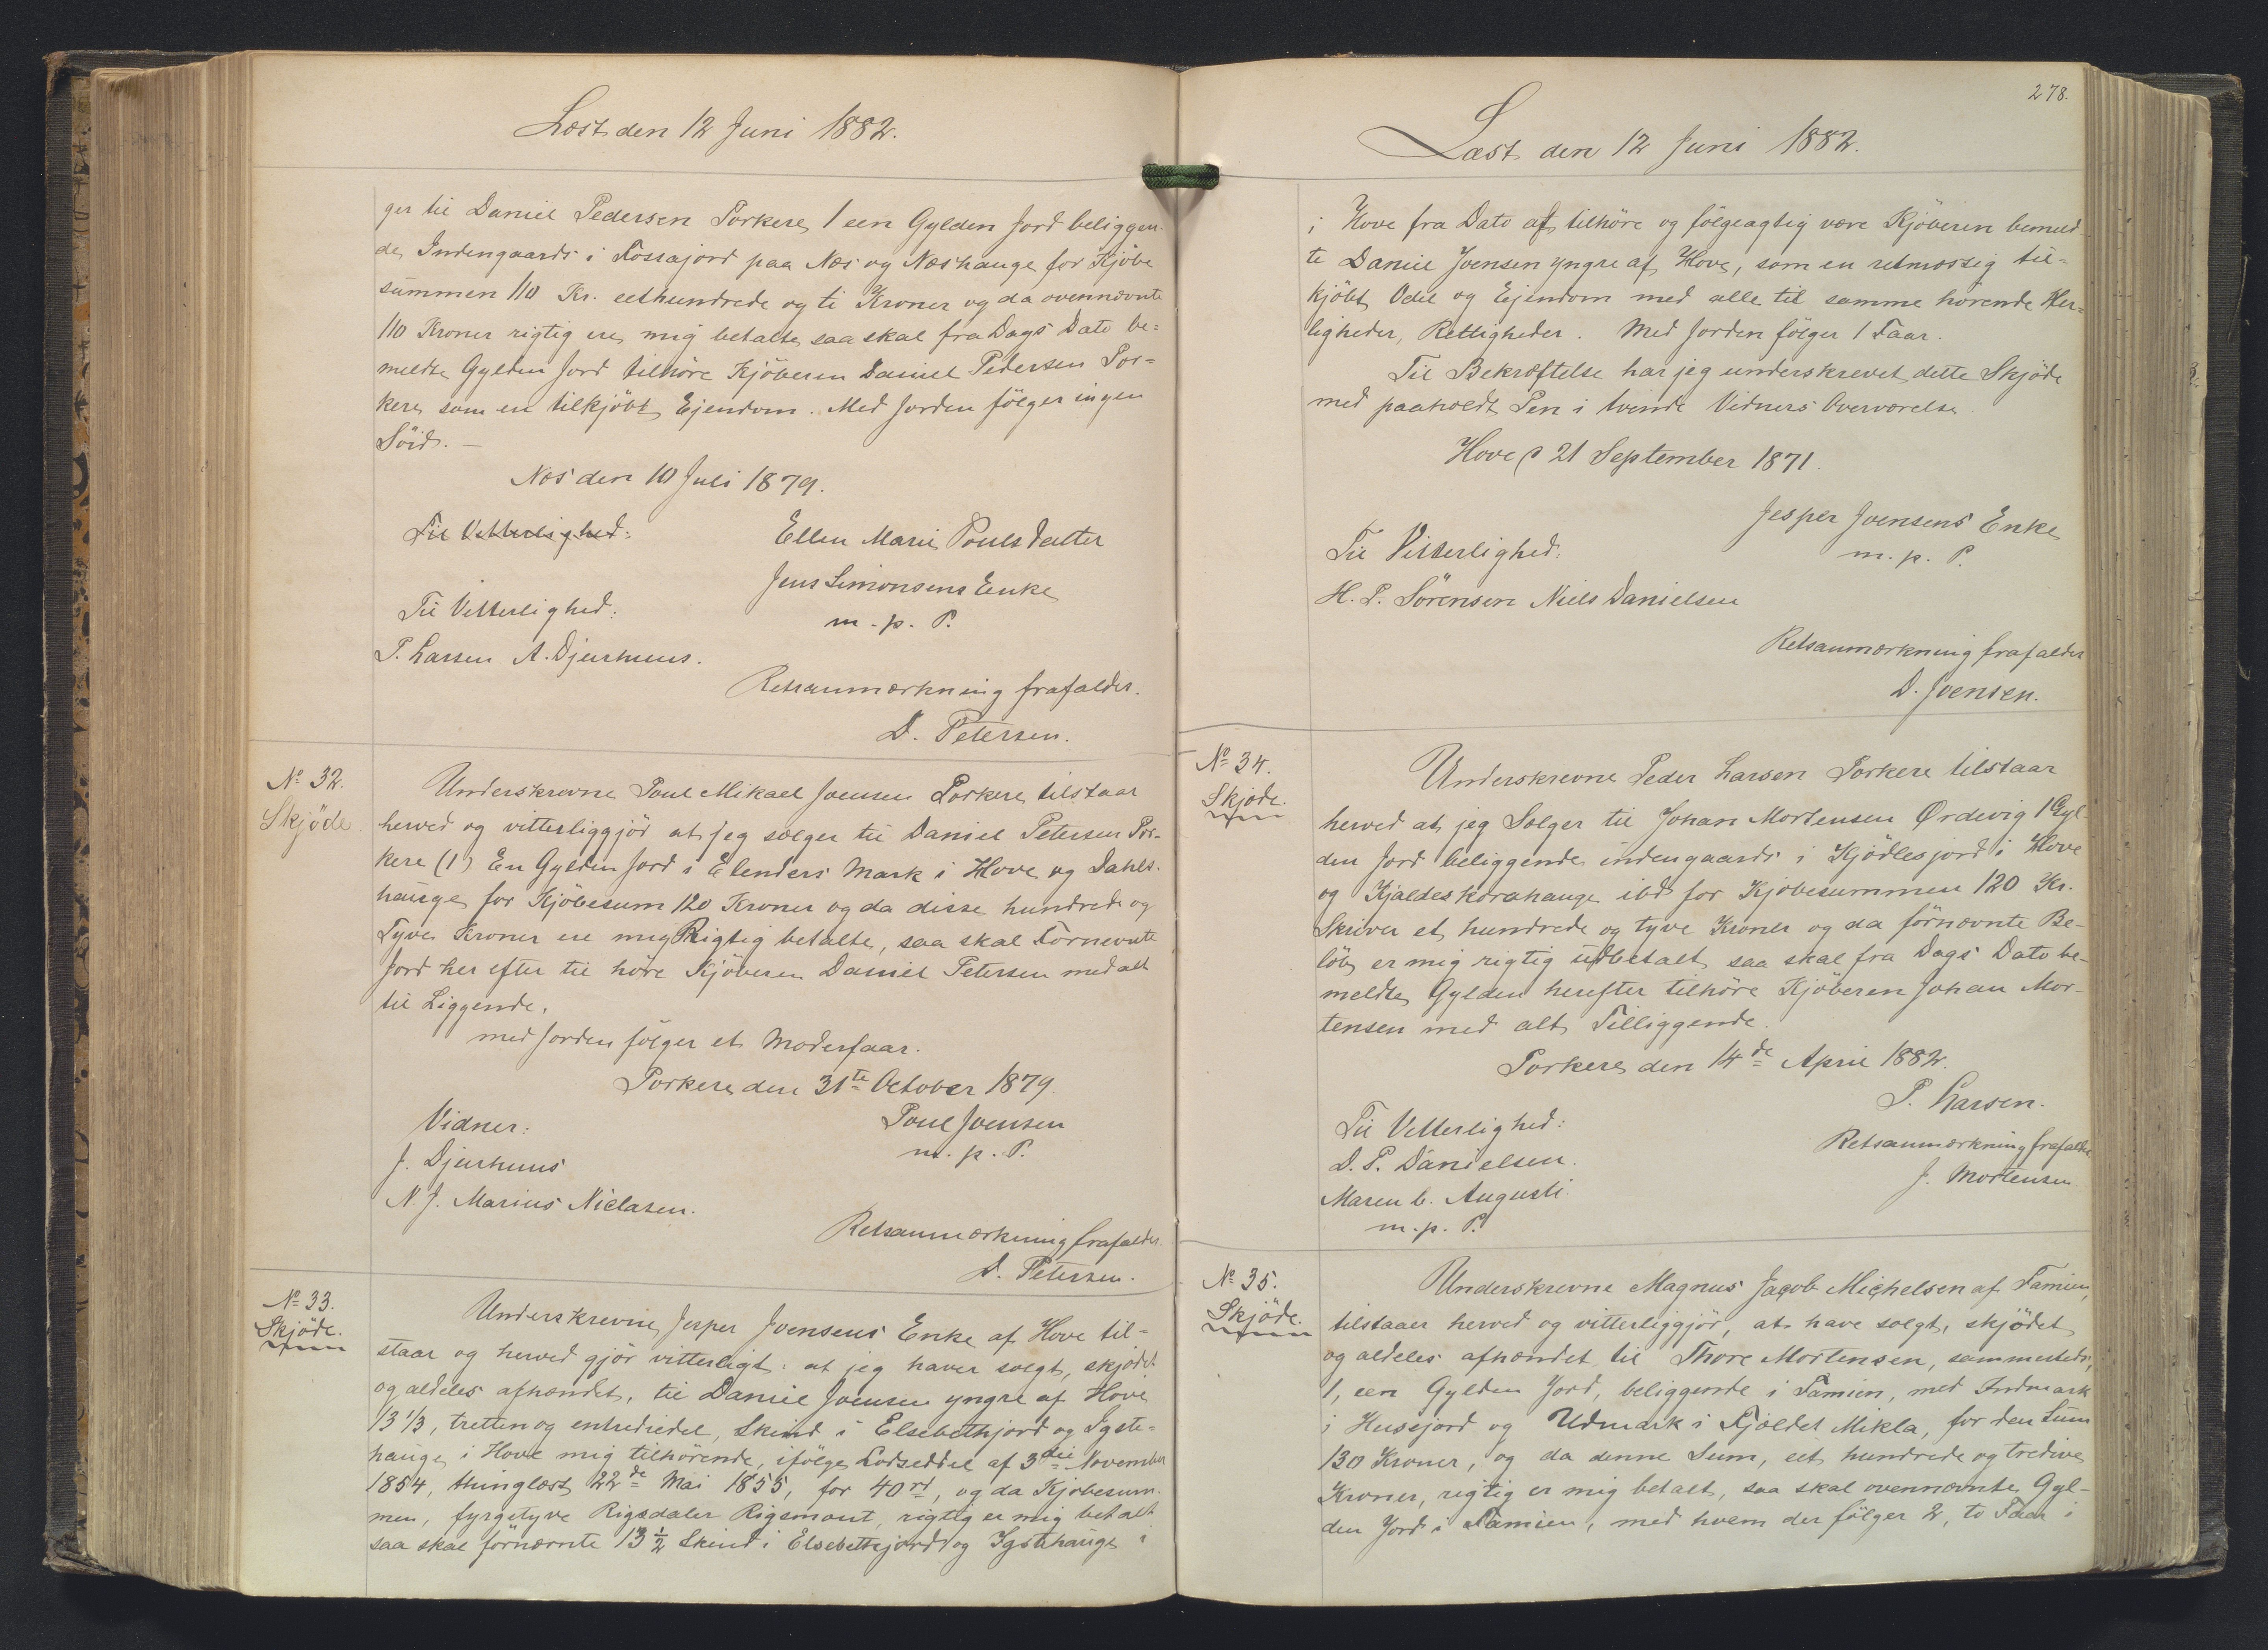 Læst den 12 Juni 1882.
ger til Daniel Pedersen Porkere 1 een Gylden Jord beliggen-
de Indengaards i Fossajord paa Næs og Næshauge for Kjöbe
summen 110 Kr. eethundrede og ti Kroner og da ovennævnte
110 Kroner rigtig ere mig betalte saa skal fra Dags Dato be=
meldte Gylden Jord tilhöre Kjöberen Daniel Pedersen Por=
kere som en tilkjöbt Ejendom. Med Jorden fölger ingen
Söid. —
Næs den 10 Juli 1879.
Til Vitterlighed:
Ellen Marie Poulsdatter
Jens Simonsens Enke
Til Vitterlighed:
m. p. P.
P. Larsen A. Djurhuus.
Retsanmærkning frafaldes.
D. Petersen.
No 32.
Skjöde
Underskrevne Poul Mikael Joensen Porkere tilstaar
herved og vitterliggjör at jeg sælger til Daniel Petersen Por-
kere (1) En Gylden Jord i Elenders Mark i Hove og Dahls-
hauge for Kjöbesum 120 Kroner og da disse hundrede og
Tyve Kroner ere mig Rigtig betalte, saa skal Fornevnte
Jord her efter til höre Kjöberen Daniel Petersen med alt
til Liggende.
med Jorden fölger et Moderfaar.
Porkere den 31te October 1879.
Vidner:
Poul Joensen
m. p. P.
J. Djurhuus
N. J. Marius Niclasen.
Retsanmærkning frafaldes.
D. Petersen.
No 33.
Skjöde.
Underskrevne Jesper Joensens Enke af Hove til=
staar og herved gjör vitterligt: at jeg haver solgt, skjödet
og aldeles afhændet, til Daniel Joensen yngre af Hove
13 1/3, tretten og entrediedel, Skind i Elsebethjord og Igste=
hauge i Hove mig tilhörende, ifölge Lodseddel af 3die November
1854, thinglæst 22de Mai 1855, for 40 rd, og da Kjöbesum-
men, fyrgetyve Rigsdaler Rigsmönt, rigtig er mig betalt
saa skal förnævnte 13 1/2 Skind i Elsebettejord og Igstehauge i
278.
Læst den 12 Juni 1882.
i Hove fra Dato af tilhöre og fölgeagtig være Kjöberen bemeld
te Daniel Joensen yngre af Hove, som en retmæssig til=
kjöbt Odel og Ejendom med alle til samme hörende Her=
ligheder, Rettigheder. Med Jorden fölger 1 Faar.
Til Bekræftelse har jeg underskrevet dette Skjöde
med paaholdt Pen i tvende Vidners Overværelse
Hove d 21 September 1871.
Jesper Joensens Enke
m. p. P.
Til Vitterlighed:
H. P. Sörensen Niels Danielsen
Retsanmærkning frafaldes
D. Joensen.
No 34.
Skjöde.
Underskrevne Peder Larsen Porkere tilstaar
herved at jeg Sælger til Johan Mortensen Ørdevig 1 Gyl-
den Jord beliggende indengaards i Kjödlesjord i Hove
og Kjaldeskorahauge ibd for Kjöbesummen 120 Kr.
Skriver et hundrede og tyve Kroner og da förnævnte Be-
löb er mig rigtig udbetalt saa skal fra Dags Dato be-
meldte Gylden herefter tilhöre Kjöberen Johan Mor-
tensen med alt Tilliggende.
Porkere den 14de April 1882.
P. Larsen.
Til Vitterlighed:
D. P. Danielsen.
Maren C. Augusti.
m. p. P.
Retsanmærkning frafaldes
J. Mortensen
No 35.
Skjöde.
Underskrevne Magnus Jacob Michelsen af Famien,
tilstaaer herved og vitterliggjör, at have solgt, skjödet
og aldeles afhændet til Thore Mortensen, sammesteds,
1, een Gylden Jord, beliggende i Famien, med Indmark
i Husejord og Udmark i Fjældet Mikla, for den Sum
130 Kroner, og da denne Sum, eet hundrede og tredive
Kroner, rigtig er mig betalt, saa skal ovennævnte Gyl-
den Jord i Famien, med hvem der fölger 2, to Faar i